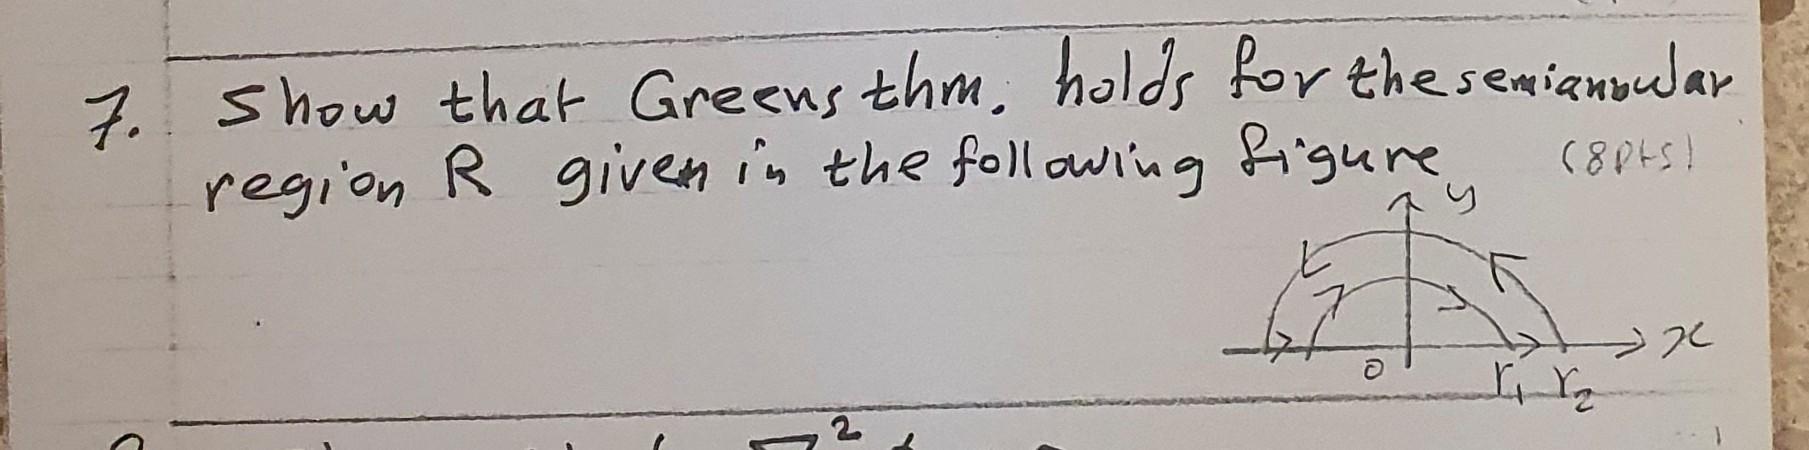 7. Show that Greens thm. holds for the semianular
region R given in the following figure (8pts)
y
x
0
r₁ r₂
∇²